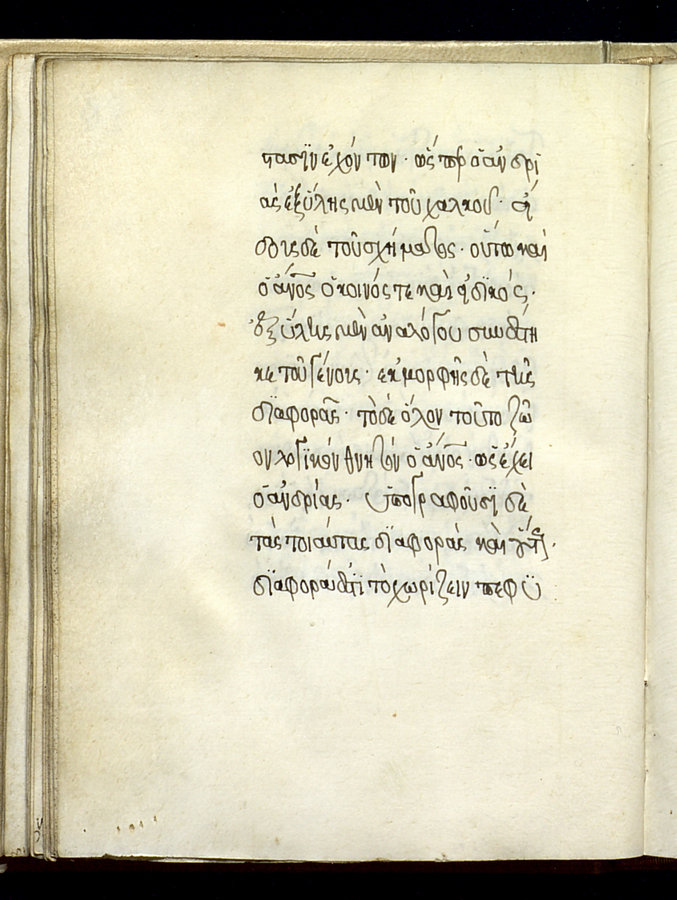 τασϊν ἐχόντων· ὥσπερ ὁ ἀνδρϊ
ὰς ἐξ ὕλης μὲν τοῦ χαλκοῦ· εἴ
δους δὲ τοῦ σχήματος· οὕτω καὶ
ὁ ἄνος ὁ κοινός τε καὶ εἰδϊκός·
ἐξ ὕλης μὲν ἀναλόγου συνέστη
κε τοῦ γένους· ἐκ μορφῆς δὲ τῆς
διαφορᾶς· τὸ δὲ ὅλον τοῦτο ζῶ
ον λογϊκὸν θνητὸν ὁ ἄνος· ὡς ἐκεῖ
ὁ ἀνδριάς· ὑπογράφουσϊ δὲ
τὰς τοιαύτας δϊαφορὰς καὶ οὕτως·
δϊαφορά ἐστϊ τὸ χωρίζειν πεφϋ